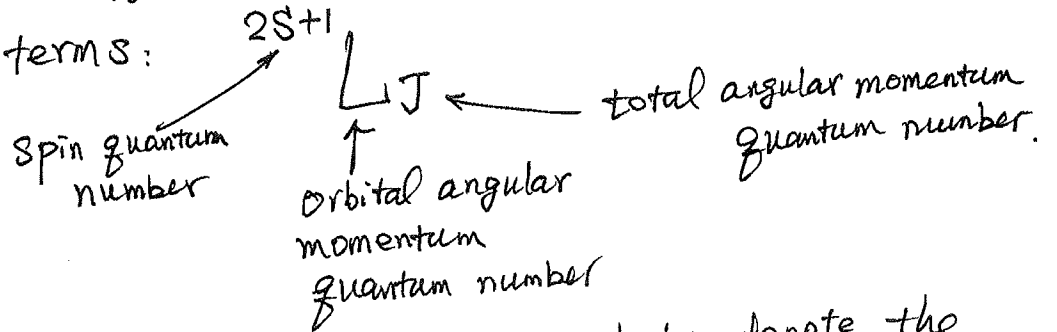 terms: 2S+1 L J
total angular momentum
quantum number.
spin quantum
number
orbital angular
momentum
quantum number
denote the